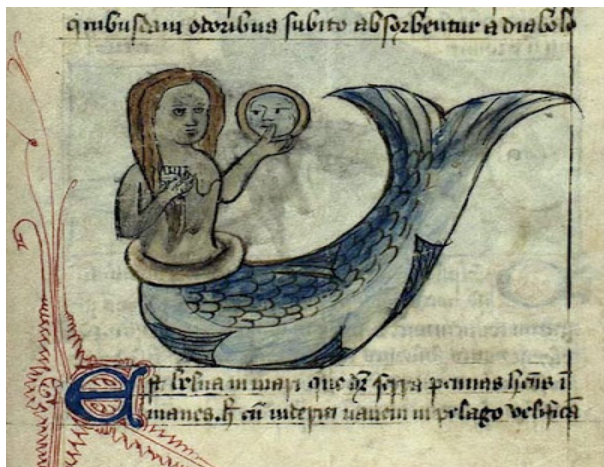 quibusdam odoribus subito absorbentur a diabolo
Est belua in mari que dr̄ serra pennas hēns ī
manes. h̄ cū uiderit nauem in pelago velificā